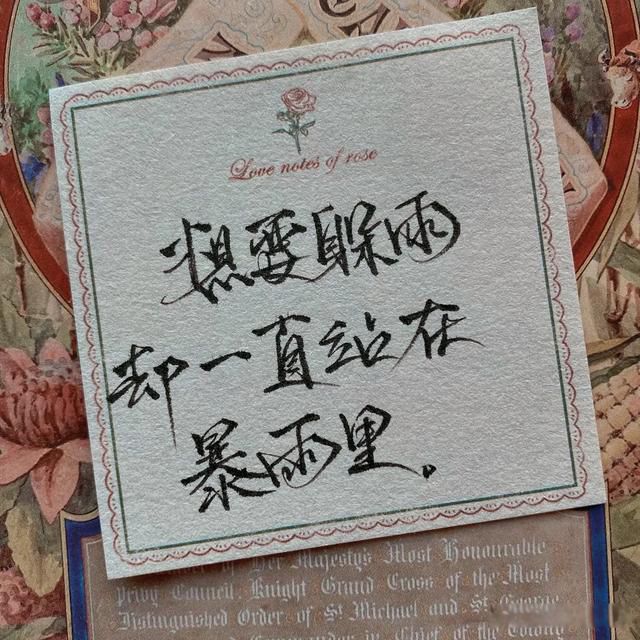 Love notes of rose
想要躲雨
却一直站在
暴雨里。
Her Majestys Most Honourable
Privy Council Knight Grand Cross of the Most
Distinguished Order of St Michael and St George
Commander in Chief of the